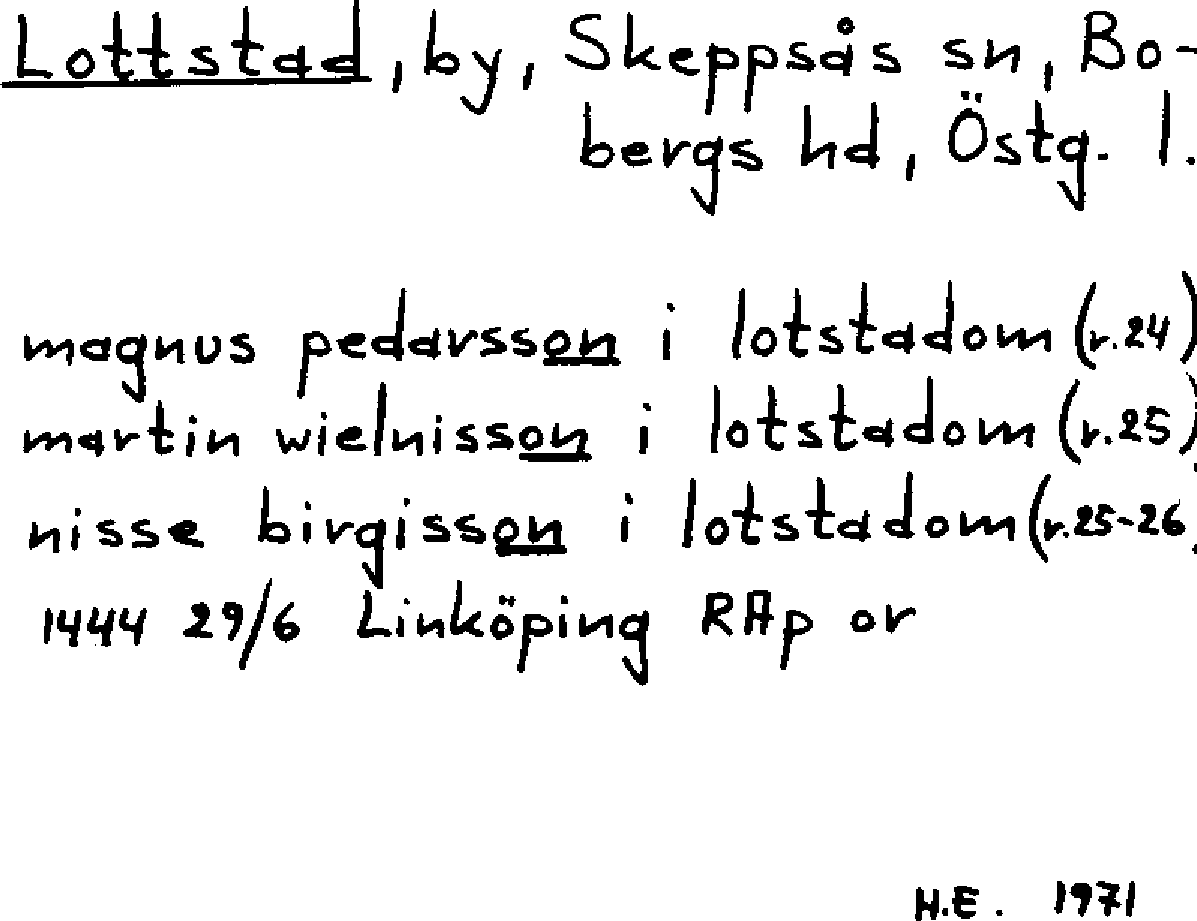 Lottstad, by, Skeppsås sn, Bo-
bergs hd, Östg. l.
magnus pedarsson i lotstadom (r.24)
martin wielnisson i lotstadom (r.25)
nisse birgisson i lotstadom (r.25-26)
1444 29/6 Linköping RAp or
H.E. 1971